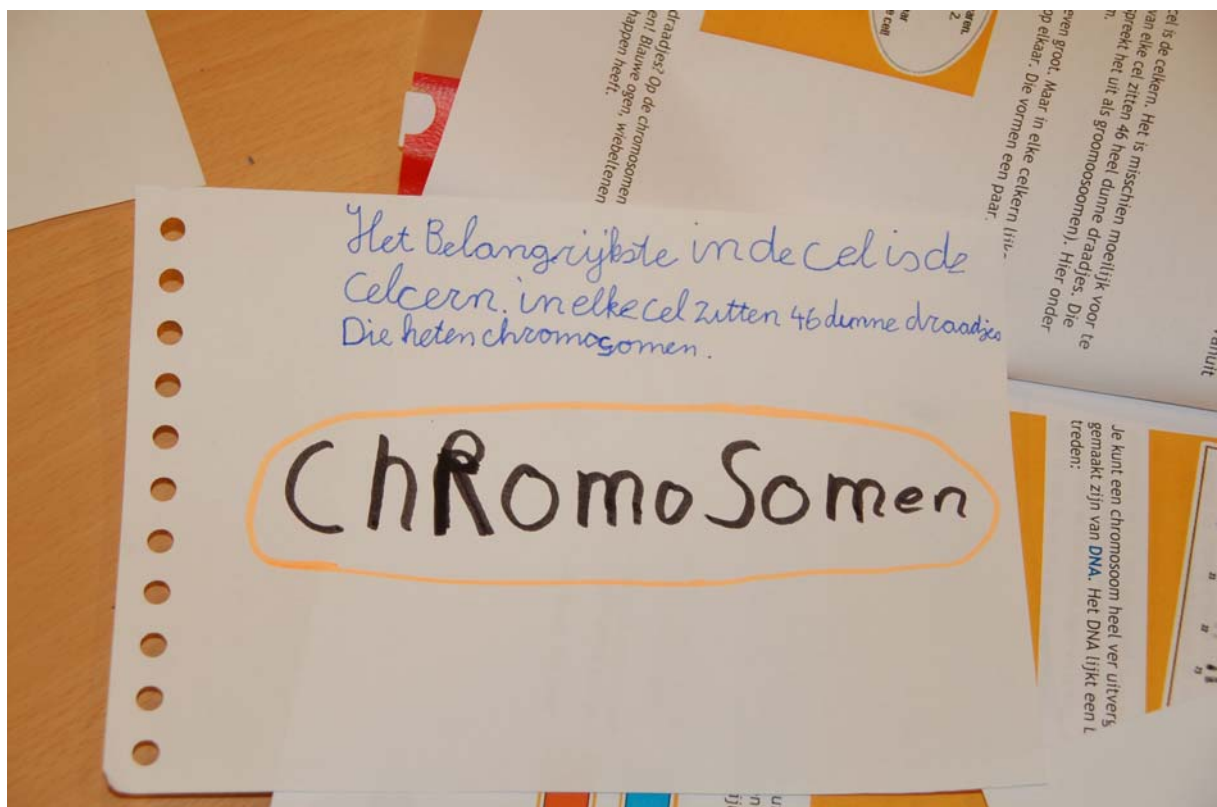 Het Belangrijkste in de cel is de
Celcern. in elke cel zitten 46 dunne draadjes
Die heten chromosomen.
ChRomoSomen
draadjes? Op de chromosomen
en! Blauwe ogen, wiebeltenen
happen heeft.
aren.
2.
ar
e cell
cel is de celkern. Het is misschien moeilijk voor te
van elke cel zitten 46 heel dunne draadjes. Die
spreekt het uit als groomoosoomen). Hier onder
en.
even groot. Maar in elke celkern lijk
op elkaar. Die vormen een paar.
vanuit
Je kunt een chromosoom heel ver uitverg
gemaakt zijn van DNA. Het DNA lijkt een l
treden: